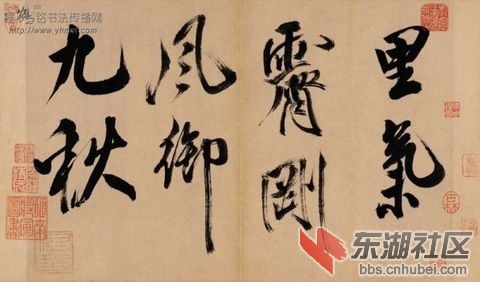 里氣
霽剛
風御
九秋
铭书法传播网
东湖社区
bbs.cnhubei.com